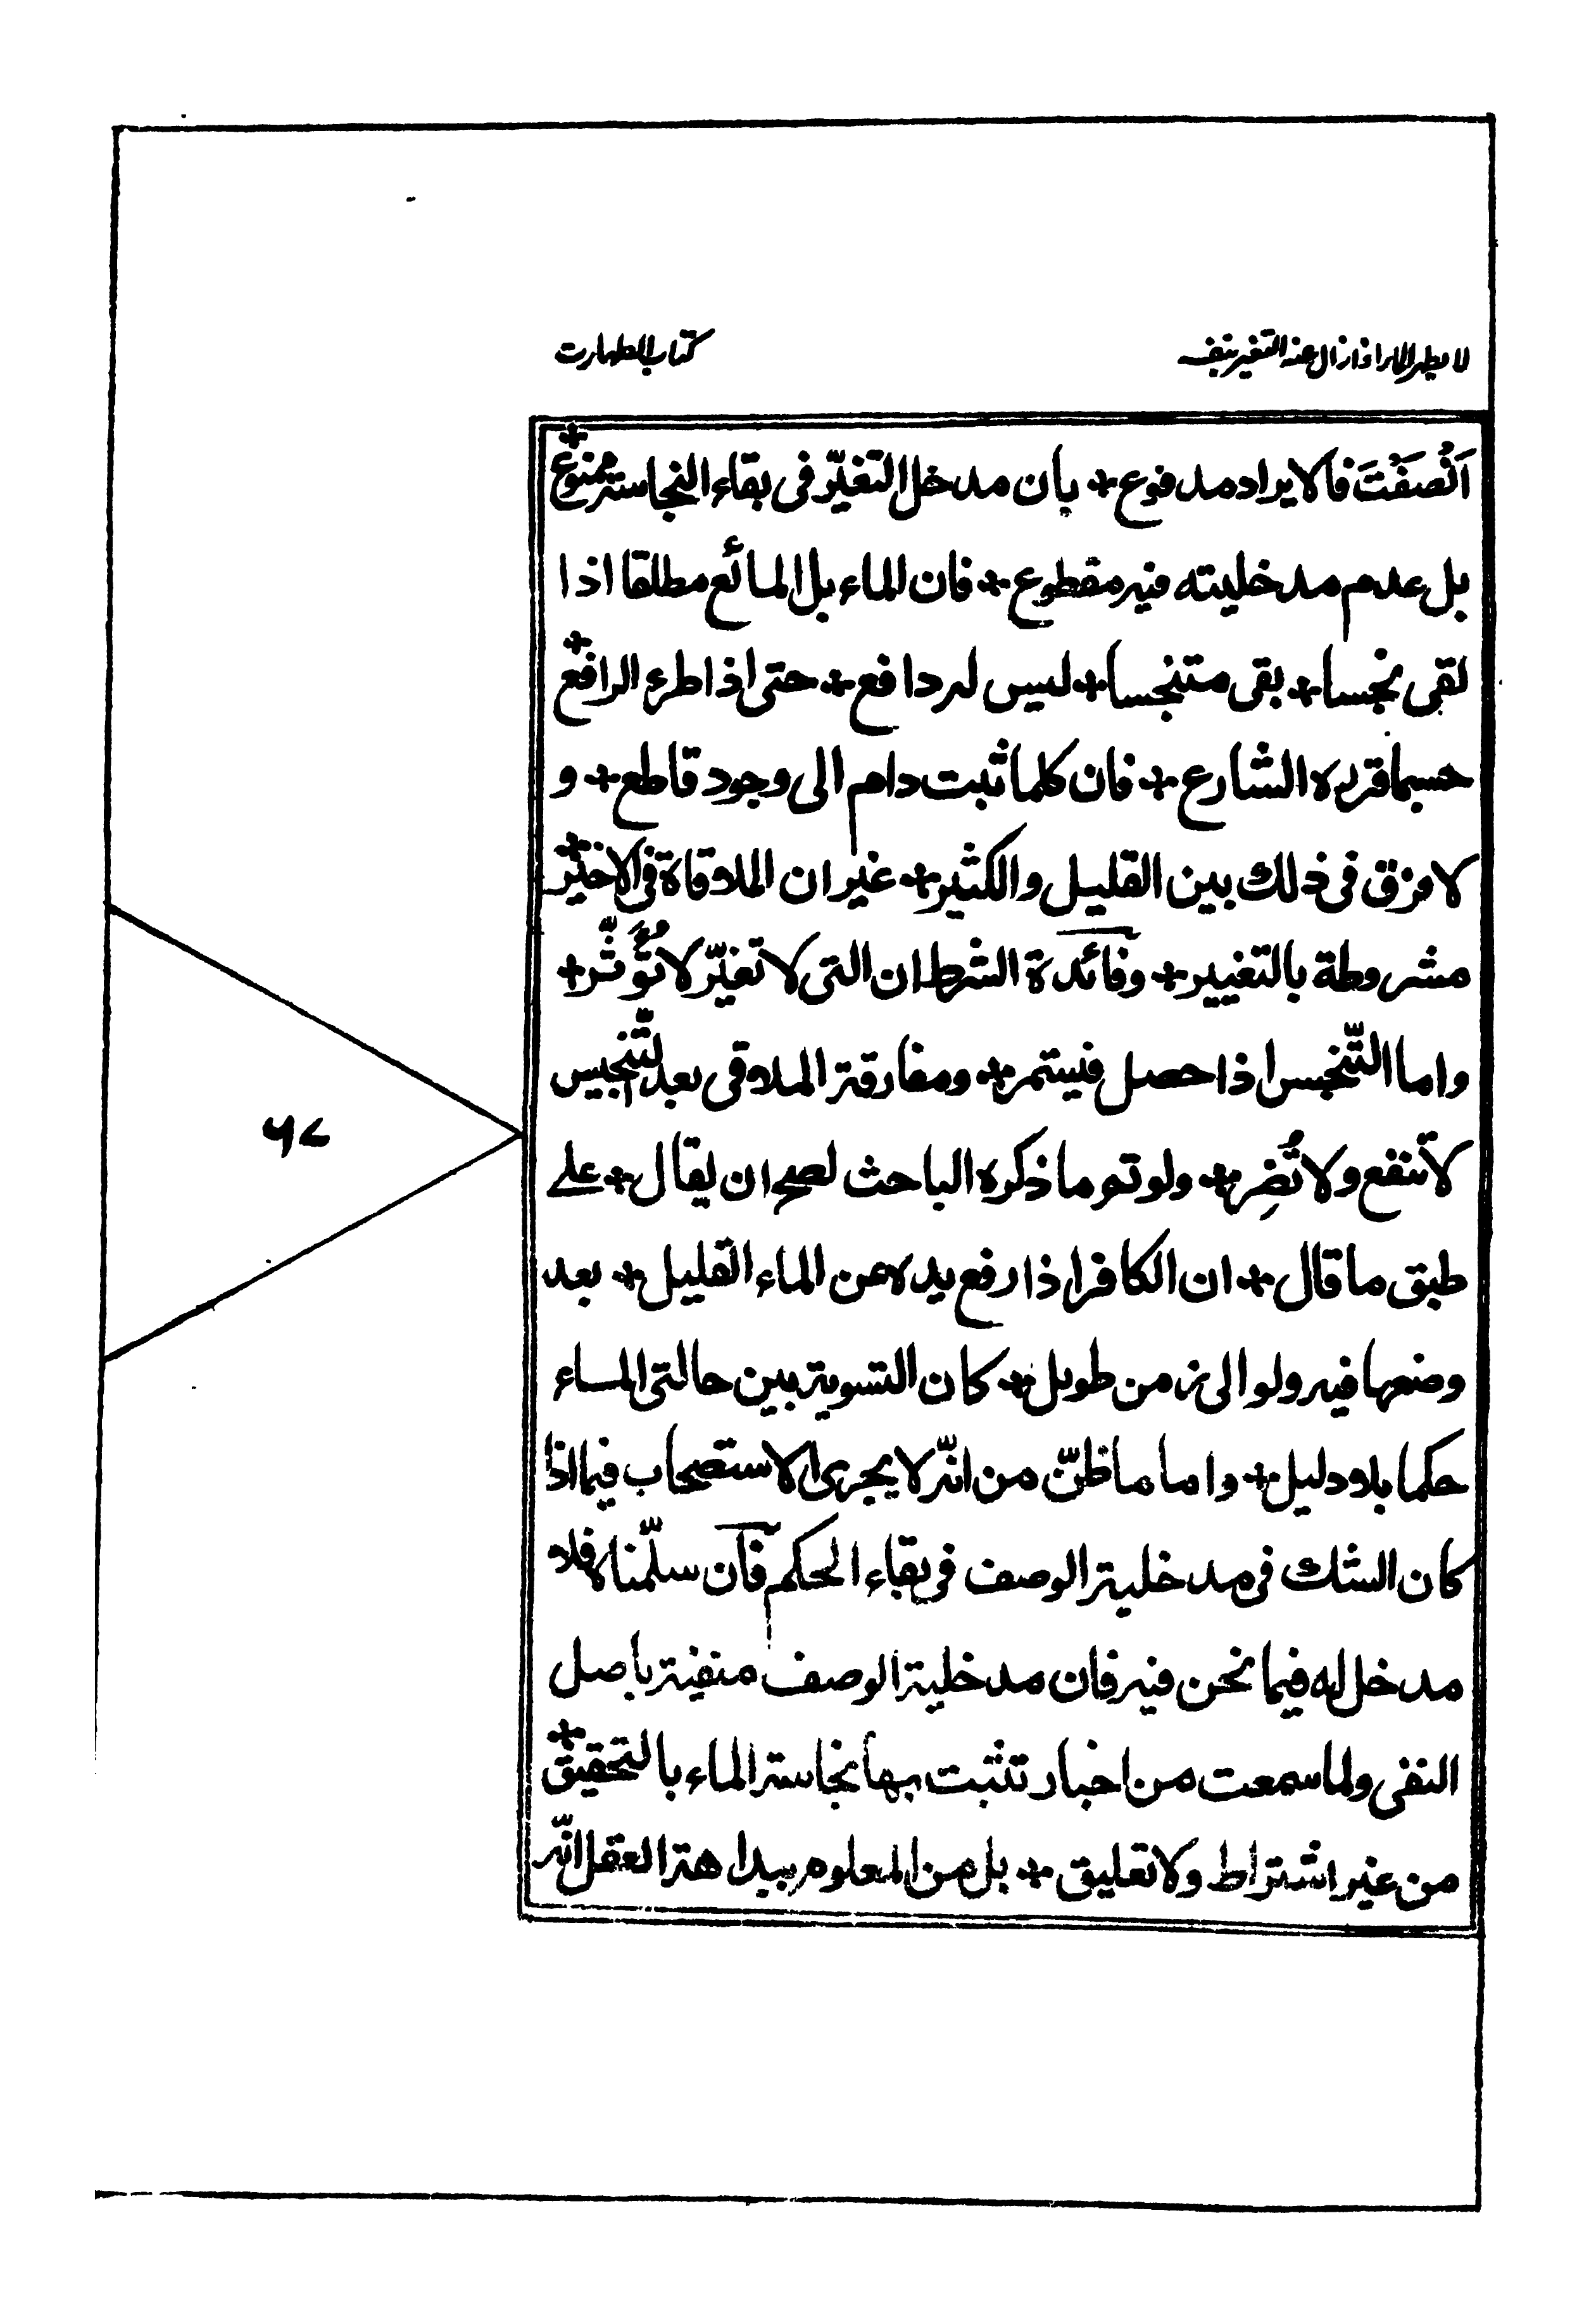 لا يطهر الماء اذا زال عنه التغير بنفسه
كتاب الطهارت
اَنْصَفْتَ فالايراد مدفوع + بان مدخل التغيّر فى بقاء النجاسة ممنوع +
بل عدم مدخليته فيه مقطوع + فان الماء بل المائع مطلقا اذا
لقى نجسا + بقى متنجسا + ليس له دافع + حتى اذا طرء الرافع +
حسبما قرره الشارع + فان كلما ثبت دام الى وجود قاطع + و
لا فرق فى ذلك بين القليل والكثير + غير ان الملاقاة فى الاخير +
مشروطة بالتغيير + وفائدة الشرط ان التى لا تغيّر لا تُؤَثّر +
واما التّنجس اذا حصل فيستمر + ومفارقة الملاقى بعد التّنجيس
لا تنفع ولا تُضِر + ولو تم ما ذكره الباحث لصح ان يقال + على
طبق ما قال + ان الكافر اذا رفع يده عن الماء القليل + بعد
وضعها فيه ولو الى زمن طويل + كان التسوية بين حالتى الماء
حكما بلا دليل + واما ما ظنّ من انّه لا يجرى الاستصحاب فيما اذا
كان الشك فى مدخلية الوصف فى بقاء الحكم فان سلّمناه فلا
مدخل له فيما نحن فيه فان مدخلية الوصف منفية باصل
النفى ولما سمعت من اخبار تثبت بها نجاسة الماء بالتحقيق +
من غير اشتراط ولا تعليق + بل من المعلوم ببداهة العقل انّه
٦٧